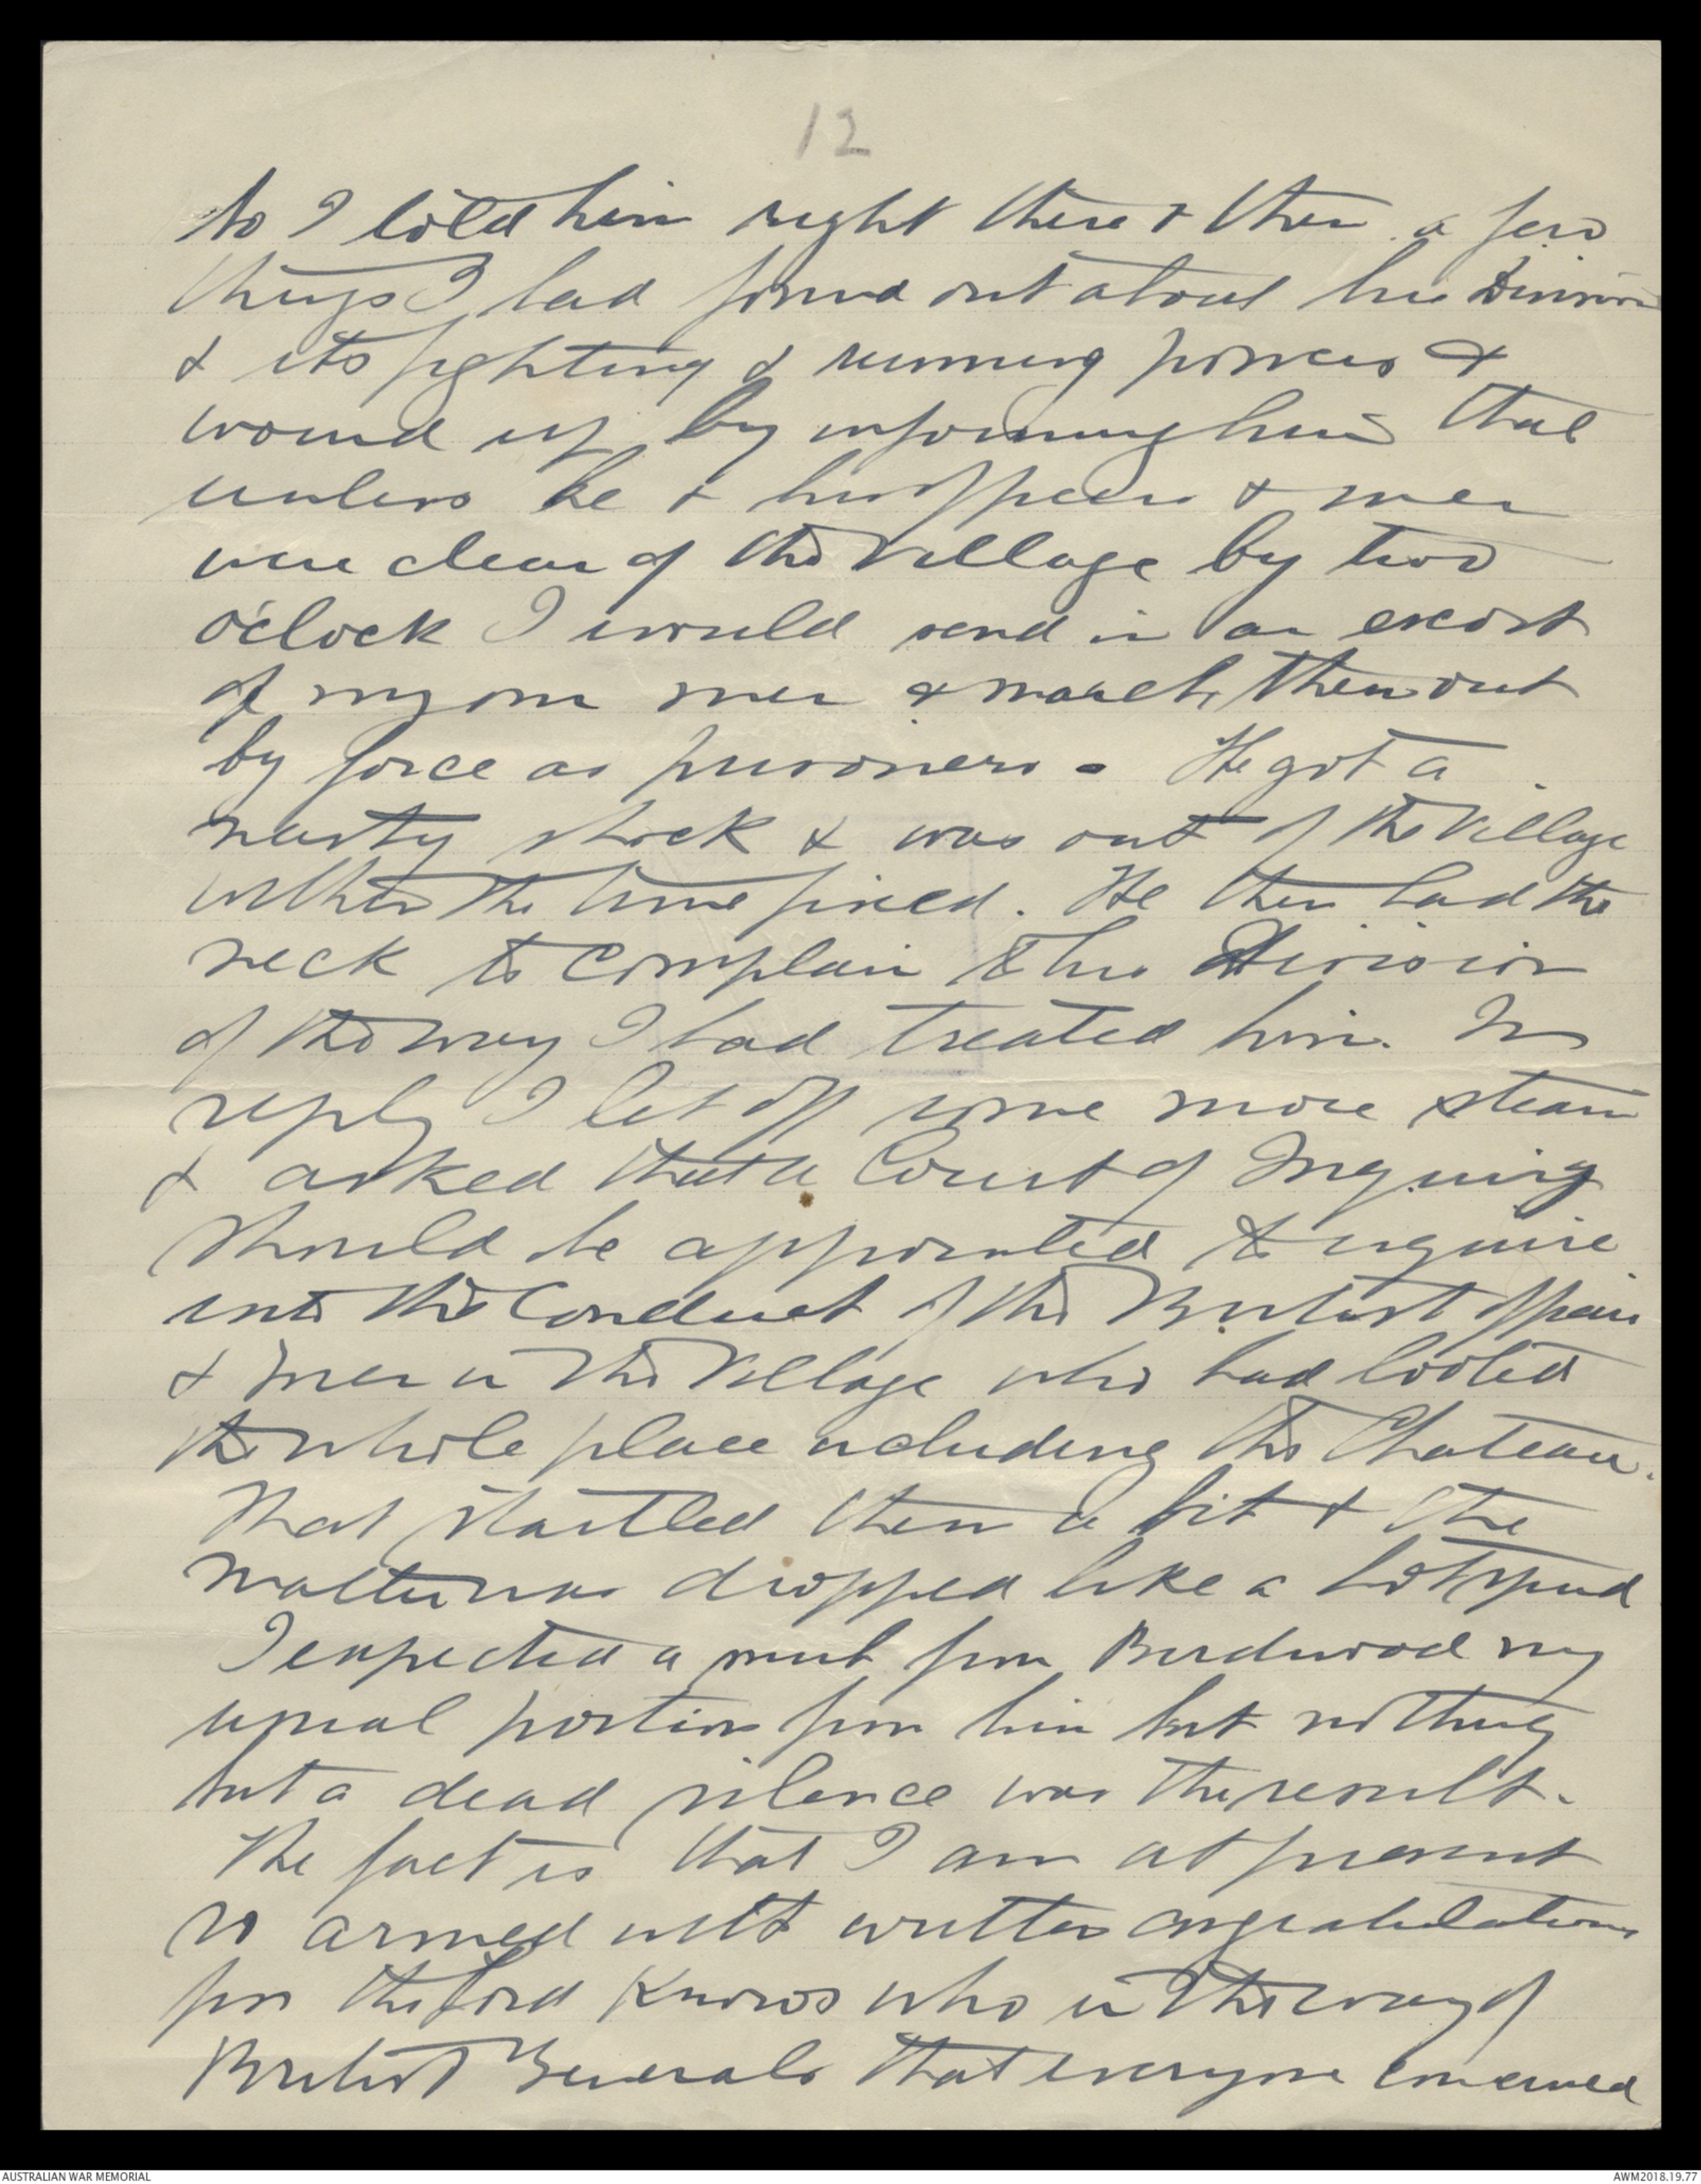 12
So I told him right there & then a few
things I had found out about his Division
& its fighting & running powers &
wound up by informing him that
unless he & his officers & men
were clear of the Village by two
o'clock I would send in an escort
of my own men & march them out
by force as prisoners - He got a
nasty shock & was out of the Village
within the time fixed. He then had the
neck to complain to his Division
of the way I had treated him. In
reply I let off some more steam
& asked that a Court of Inquiry
should be appointed to inquire
into the conduct of the British officers
& men in the Village who had looted
the whole place including the Chateau.
That startled them a bit & the
matter was dropped like a hot spud
I expected a snub from Birdwood my
usual portion from him but nothing
but a dead silence was the result.
The fact is that I am at present
so armed with written congratulations
from the Lord Knows who in the way of
British Generals that everyone concerned
AUSTRALIAN WAR MEMORIAL
AWM2018.19.77